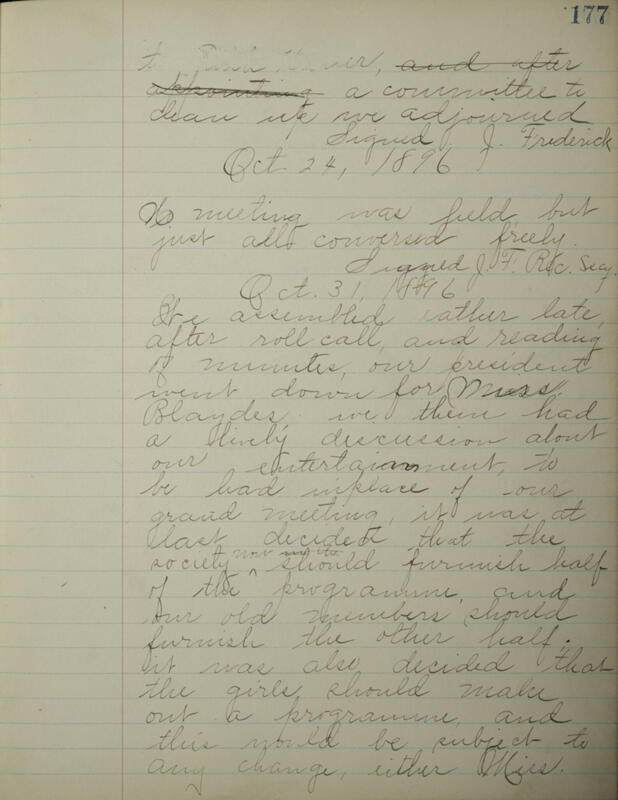 177
to , and after
appointing a committee to
clean up we adjourned
Signed J. Frederick
Oct. 24, 1896
No meeting was held, but
just all conversed freely.
Signed J. F. Rec. Secy.
Oct. 31, 1896
We assembled rather late,
after roll call, and reading
of minutes, our president
went down for Miss
Blaydes. we them had
a lively discussion about
our entertainment, to
be had inplace of our
grand meeting, it was at
last decided that the
society now should furnish half
of the programme, and
our old members should
furnish the other half.
it was also decided that
the girls should make
out a programme, and
this would be subject to
any change, either Miss.